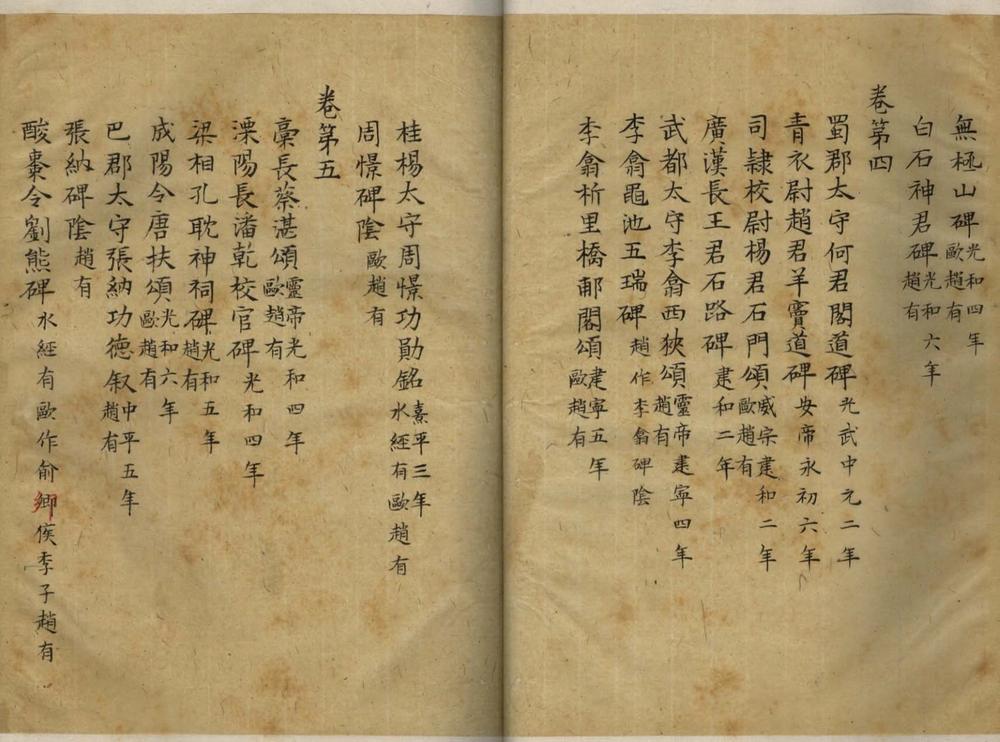 無極山碑光和四年歐趙有
白石神君碑光和六年趙有
卷第四
蜀郡太守何君閣道碑光武中元二年
青衣尉趙君羊竇道碑安帝永初六年
司隸校尉楊君石門頌威宗建和二年歐趙有
廣漢長王君石路碑建和二年
武都太守李翕西狹頌靈帝建寧四年趙有
李翕黽池五瑞碑趙作李翕碑陰
李翕析里橋郙閣頌建寧五年歐趙有
桂楊太守周憬功勛銘熹平三年水經有歐趙有
周憬碑陰歐趙有
卷第五
稾長蔡湛頌靈帝光和四年歐趙有
溧陽長潘乾校官碑光和四年
梁相孔耽神祠碑光和五年趙有
成陽令唐扶頌光和六年歐趙有
巴郡太守張納功德叙中平五年趙有
張納碑陰趙有
酸棗令劉熊碑水經有歐作俞鄉侯季子趙有